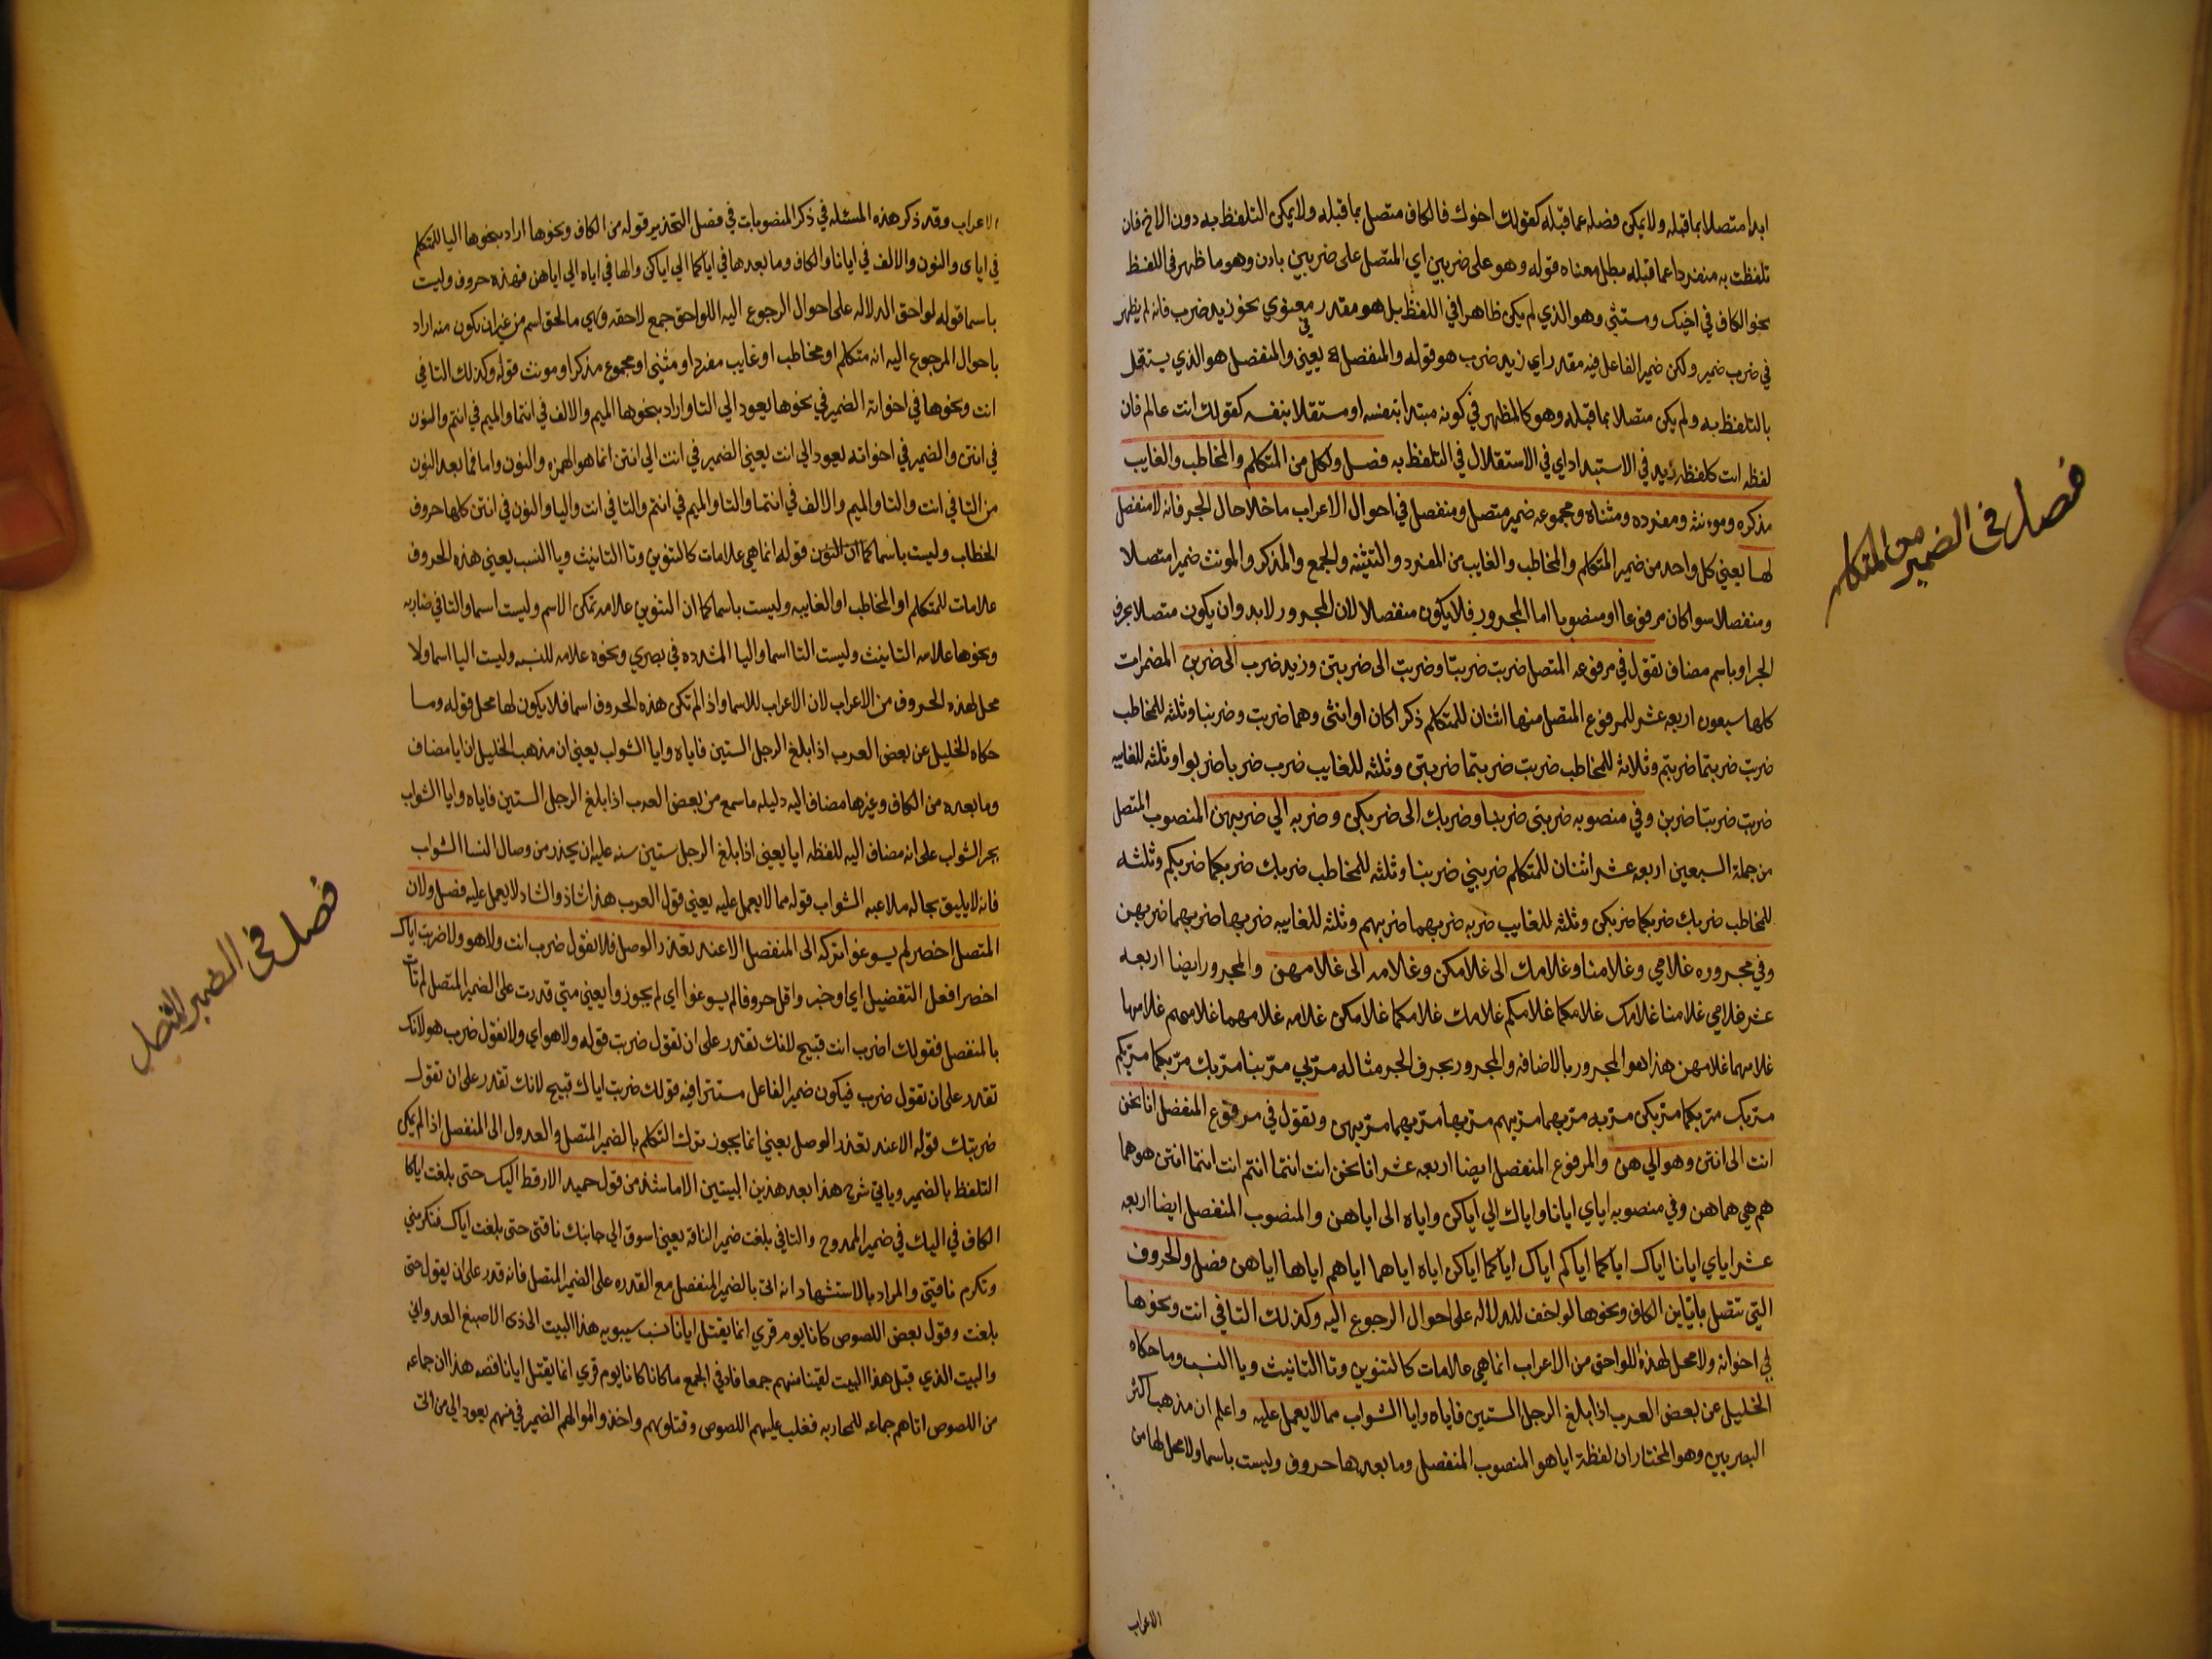 ابدا متصلا بما قبله ولا يمكن فصله عما قبله كقولك اخوك فالكاف متصل بما قبله ولا يمكن التلفظ به دون الاخ فان
تلفظت به منفردا عما قبله بطل معناه قوله وهو على ضربين اي المتصل على ضربين بارز وهو ما ظهر في اللفظ
نحو الكاف في اخيك ومستثني وهو الذي لم يكن ظاهرا في اللفظ بل هو مقدر معنوي نحو زيد ضرب فانه لم يظهر
في ضرب ضمير ولكن ضمير الفاعل فيه مقدر اي زيد ضرب هو قوله والمنفصل يعني والمنفصل هو الذي يستقل
بالتلفظ به ولم يكن متصلا بما قبله وهو كالمظهر في كونه مبتدا بنفسه او مستقلا بنفسه كقولك انت عالم فان
لفظه انت كلفظه زيد في الاستبداد اي في الاستقلال في التلفظ به فصل ولكل من المتكلم والمخاطب والغايب
مذكره ومونثه ومفرده ومثناه ومجموعه ضمير متصل ومنفصل في احوال الاعراب ما خلا حال الجر فانه لا منفصل
لها يعني كل واحد من ضمير المتكلم والمخاطب والغايب من المفرد والتثنيه والجمع والمذكر والمونث ضميرا متصلا
ومنفصلا سوا كان مرفوعا او منصوبا اما المجرور فلا يكون منفصلا لان المجرور لا بد وان يكون متصلا بحرف
الجر او باسم مضاف تقول في مرفوعه المتصل ضربت ضربنا وضربت الى ضربتن وزيد ضرب الى ضربن المضمرات
كلها سبعون اربعه عشر للمرفوع المتصل منها اثنان للمتكلم ذكرا كان او انثى وهما ضربت وضربنا وثلثه للمخاطب
ضربت ضربتما ضربتم وثلاثه للمخاطب ضربت ضربتما ضربتن وثلثه للغايب ضرب ضربا ضربوا وثلثه للغايبه
ضربت ضربتا ضربن وفي منصوبه ضربني ضربنا وضربك الى ضربكن وضربه الي ضربهن المنصوب المتصل
من جملة السبعين اربعه عشر اثنان للمتكلم ضربني ضربنا وثلثه للمخاطب ضربك ضربكما ضربكم وثلثه
للمخاطب ضربك ضربكما ضربكن وثلثه للغايب ضربه ضربهما ضربهم وثلثه للغايبه ضربها ضربهما ضربهن
وفي مجروره غلامي وغلامنا وغلامك الى غلامكن وغلامه الى غلامهن والمجرور ايضا اربعه
عشر غلامي غلامنا غلامك غلامكما غلامكم غلامك غلامكما غلامكن غلامه غلامهما غلامهم غلامها
غلامهما غلامهن هذا هو المجرور بالاضافه والمجرور بحرف الجر مثاله مر بي مر بنا مر بك مر بكما مر بكم
مر بك مر بكما مر بكن مر به مر بهما مر بهم مر بها مر بهما مر بهن وتقول في مرفوع المنفصل انا نحن
انت الى انتن وهو الي هن والمرفوع المنفصل ايضا اربعه عشر انا نحن انت انتما انتم انت انتما انتن هو هما
هم هي هما هن وفي منصوبه اياي ايانا واياك الي اياكن واياه الى اياهن والمنصوب المنفصل ايضا اربعه
عشر اياي ايانا اياك اياكما اياكم اياك اياكما اياكن اياه اياهما اياهم اياها اياهن فصل والحروف
التي تتصل بايا من الكاف ونحوها لواحق للدلاله على احوال الرجوع اليه وكذلك التا في انت ونحوها
في اخوانه ولا محل لهذه اللواحق من الاعراب انما هي علامات كالتنوين وتا التانيث ويا النسب وما حكاه
الخليل عن بعض العرب اذا بلغ الرجل الستين فاياه وايا الشواب مما لا يعمل عليه واعلم ان مذهب اكثر
البصريين وهو المختار ان لفظة ايا هو المنصوب المنفصل وما بعدها حروف وليست باسما ولا محل لها من
الاعراب
فصل في الضمير من المتكلم
الاعراب وقد ذكر هذه المسئله في ذكر المنصوبات في فصل التحذير قوله من الكاف ونحوها اراد بنحوها اليا للمتكلم
في اياى والنون والالف في ايانا والكاف وما بعدها في اياكما الي اياكن والها في اياه الى اياهن فهذه حروف وليست
باسما قوله لواحق الدلاله على احوال الرجوع اليه اللواحق جمع لاحقه وهي ما لحق اسم من غير ان يكون منه اراد
باحوال المرجوع اليه انه متكلم او مخاطب او غايب مفرد او مثنى او مجموع مذكر او مونث قوله وكذلك التا في
انت ونحوها في اخواته الضمير في نحوها يعود الي التا واراد بنحوها الميم والالف في انتما والميم في انتم والنون
في انتن والضمير في اخواته يعود الي انت يعني الضمير في انت الي انتن انما هو الهمزه والنون واما فما بعد النون
من التا في انت والتا والميم والالف في انتما والتا والميم في انتم والتا في انت واليا والنون في انتن كلها حروف
الخطاب وليست باسما كما ان النون قوله انما هي علامات كالتنوين وتا التانيث ويا النسب يعني هذه الحروف
علامات للمتكلم او المخاطب او الغايبه وليست باسما كما ان التنوين علامه تمكن الاسم وليست اسما والتا في ضاربه
ونحوها علامه التانيث وليست التا اسما واليا المشدده في بصري ونحوه علامه للنسبه وليست اليا اسما ولا
محل لهذه الحروف من الاعراب لان الاعراب للاسما واذا لم تكن هذه الحروف اسما فلا يكون لها محل قوله وما
حكاه الخليل عن بعض العرب اذا بلغ الرجل الستين فاياه وايا الشواب يعني ان مذهب الخليل ان ايا مضاف
وما بعده من الكاف وغيرها مضاف اليه دليله ما سمع من بعض العرب اذا بلغ الرجل الستين فاياه وايا الشواب
بجر الشواب على انه مضاف اليه للفظه ايا يعني اذا بلغ الرجل ستين سنه عليه ان يحذر من وصال النسا الشواب
فانه لا يليق بحاله ملاعبه الشواب قوله مما لا يعمل عليه يعني قول العرب هذا شاذ والشاذ لا يعمل عليه فصل ولان
المتصل اخصر لم يسوغوا تركه الى المنفصل الا عند تعذر الوصل فلا تقول ضرب انت ولا هو ولا ضربت اياك
اخصر افعل التفضيل اي اوجز واقل حروفا لم يسوغوا اي لم يجوزوا يعني متي قدرت على الضمير المتصل لم تات
بالمنفصل فقولك اضرب انت قبيح لانك تقدر على ان تقول ضربت قوله ولا هو اي ولا تقول ضرب هو لانك
تقدر على ان تقول ضرب فيكون ضمير الفاعل مستترا فيه قولك ضربت اياك قبيح لانك تقدر على ان تقول
ضربتك قوله الا عند تعذر الوصل يعني انما يجوز ترك التكلم بالضمير المتصل والعدول الى المنفصل اذا لم يمكن
التلفظ بالضمير وياتي شرح هذا بعد هذين البيتين الا ما شذ من قول حميد الارقط اليك حتى بلغت اياكا
الكاف في اليك في ضمير الممدوح والتا في بلغت ضمير الناقة يعني اسوق الي جانبك ناقتى حتى بلغت اياك فتكرمني
وتكرم ناقتي والمراد بالاستشهاد انه اتى بالضمير المنفصل مع القدره على الضمير المتصل فانه قدر على ان يقول حتى
بلغت وقول بعض اللصوص كانا يوم قري انما نقتل ايانا نسب سيبويه هذا البيت الى ذى الاصبع العدواني
والبيت الذي قبل هذا البيت لقينا منهم جمعا فاوفي الجمع ما كانا كانا يوم قري انما نقتل ايانا قصه هذا ان جماعه
من اللصوص اتاهم جماعه للمحاربه فغلب عليهم اللصوص وقتلوهم واخذوا اموالهم الضمير في منهم يعود الي من اتى
فصل في الضمير المتصل